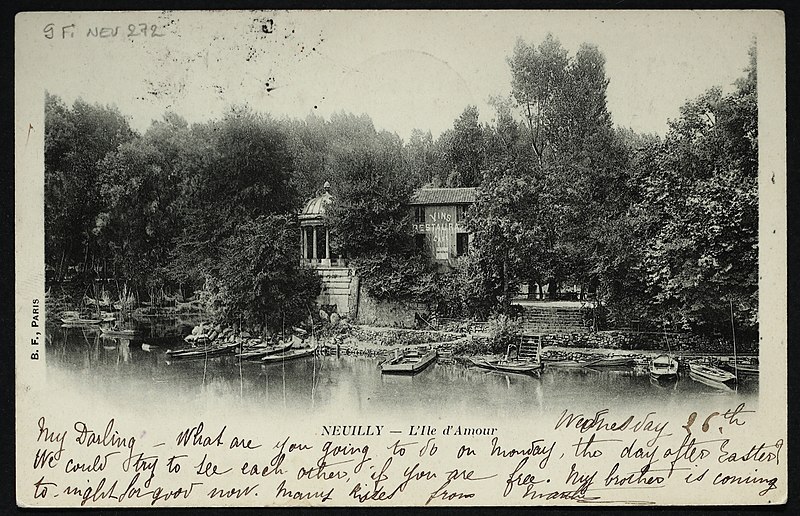 9 Fi NEU 272
VINS
RESTAURANT
B. F., PARIS
NEUILLY — L'Ile d'Amour
Wednesday 26th
My Darling - What are you going to do on Monday, the day after Easter?
We could try to see each other, if you are free. My brother is coming
to-night for good now. Many kisses from